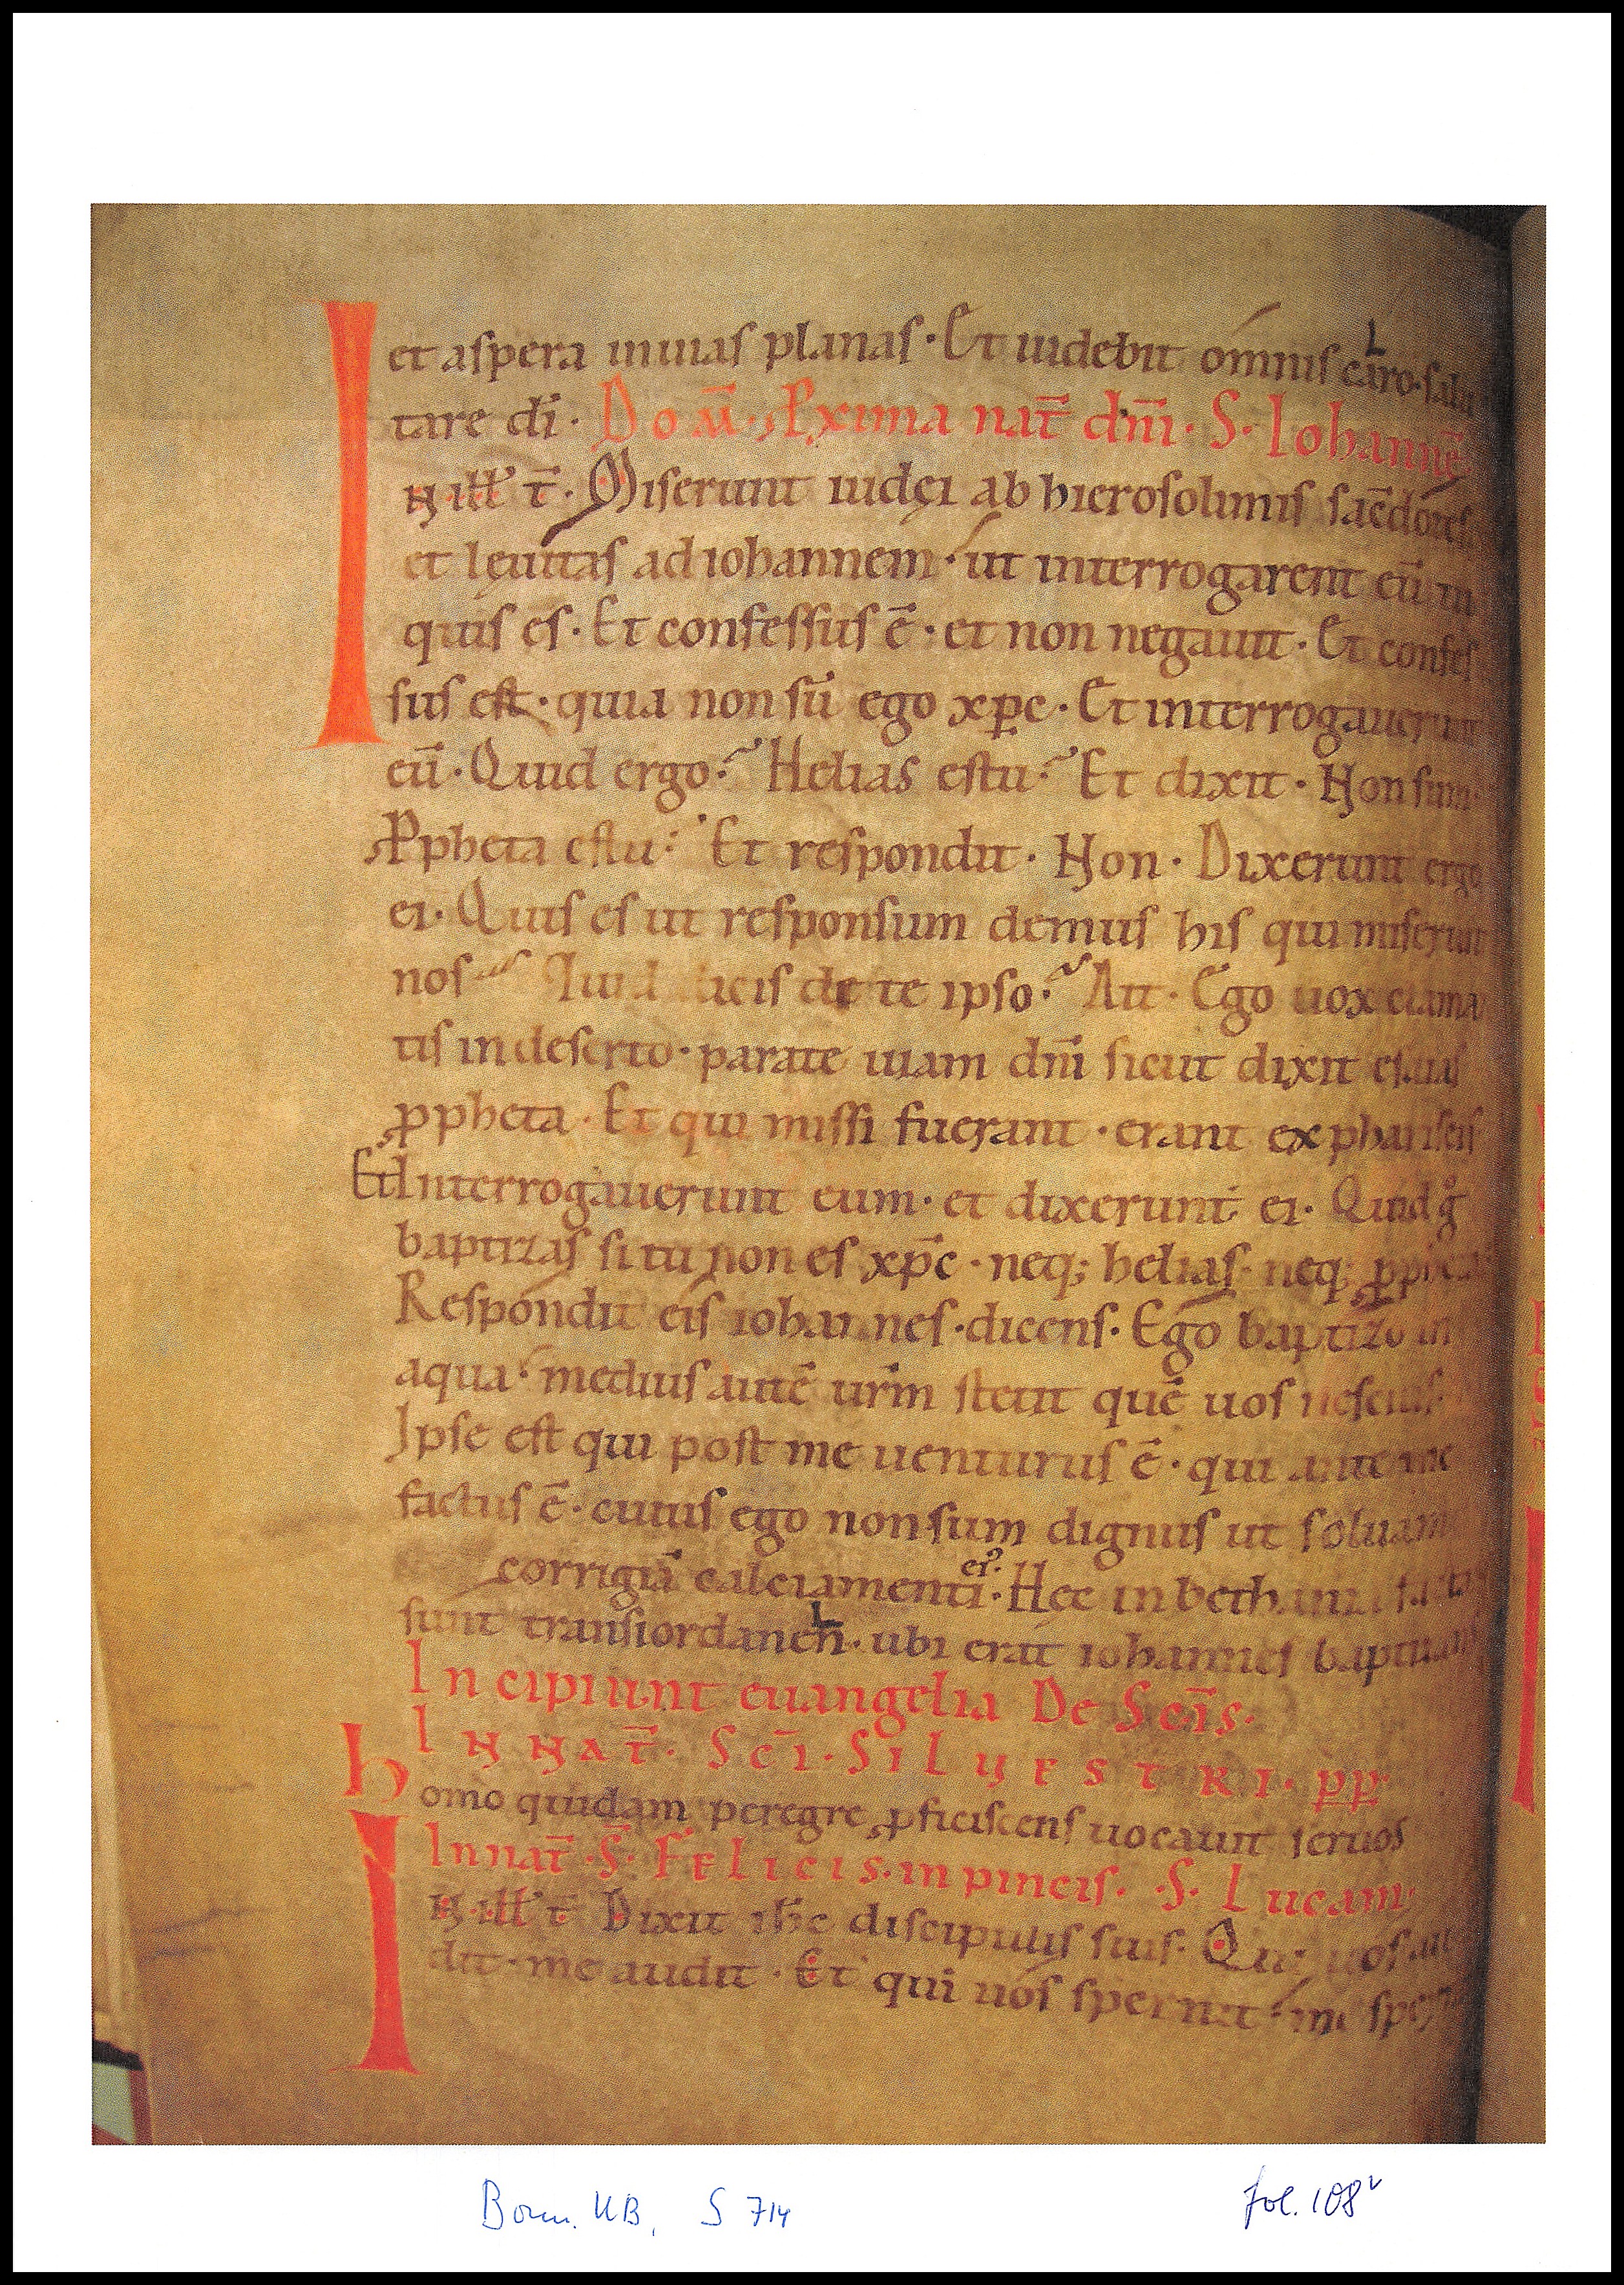 et aspera in uias planas · Et uidebit omnis caro · salu
tare dī · Dom̄ · Pxima nat̄ dn̄i · S · Iohannē
IN ill̄ t̄ · Miserunt iudęi ab hierosolimis sac̄dotes
et leuitas ad iohannem · ut interrogarent eū tu
quis es · Et confessus ē · et non negauit · Et confes
sus est · quia non sū ego xp̄c · Et interrogauerunt
eū · Quid ergo? Helias es tu? Et dixit · Non sum ·
Ppheta es tu? Et respondit · Non · Dixerunt ergo
ei · Quis es ut responsum demus his qui miserunt
nos Quid dicis de te ipso? Ait · Ego uox clama
tis in deserto · parate uiam dn̄i sicut dixit esaias
ppheta · Et qui missi fuerant · erant ex phariseis
Et Interrogauerunt eum · et dixerunt ei · Quid gͦ
baptizas si tu non es xp̄c · neq; helias · neq; ppheta
Respondit eis iohannes · dicens · Ego baptizo in
aqua · medius autē ur̄m stetit quē uos nescitis ·
Ipse est qui post me uenturus ē · qui ante me
factus ē · cuius ego non sum dignus ut soluam
corrigiā calciamenti ei᾽ · Hec in bethania facta
sunt trans iordanen · ubi erat iohannes baptizans
Incipiunt euangelia De Sc̄is ·
IN NAT̄ · Sc̄I · SILUESTRI · pp ·
homo quidam peregre pficiscens uocauit seruos
In nat̄ · S̄ · FELICIS · in pincis · S · Lucam ·
IN ill̄ t̄ Dixit ih̄c discipulis suis · Qui uos au
dit · me audit · Et qui uos spernit · me
Bonn. UB, S 714
fol. 108ᵛ